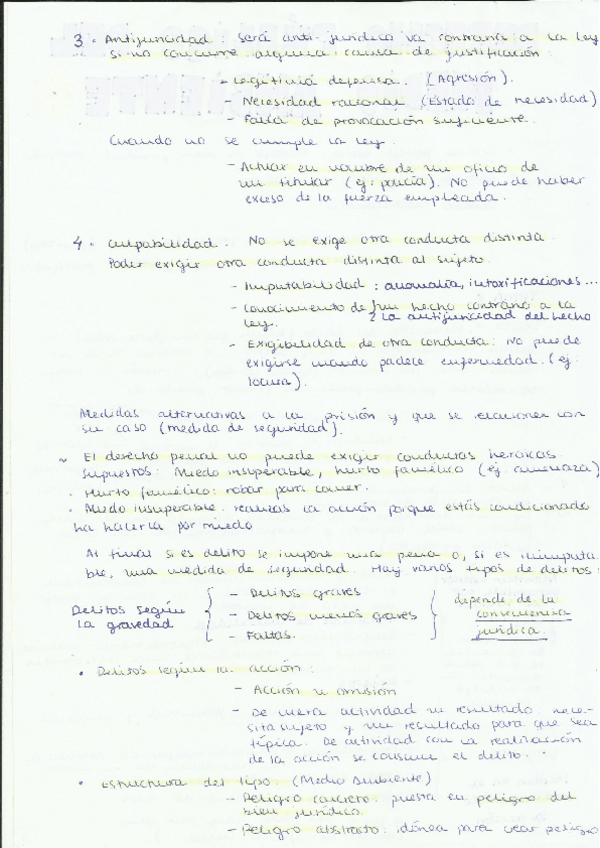 3. Antijuricidad: será anti-jurídico va contraria a la ley
si no concurre alguna causa de justificación.
- Legítima defensa. (Agresión).
- Necesidad racional (Estado de necesidad)
- Falta de provocación suficiente.
Cuando no se cumple la ley.
- Actuar en nombre de un oficio de
un titular (ej: policía). No puede haber
exceso de la fuerza empleada.
4. Culpabilidad: No se exige otra conducta distinta
Poder exigir otra conducta distinta al sujeto.
- Imputabilidad: anomalía, intoxificaciones...
- Conocimiento de un hecho contrario a la
ley. la antijuricidad del hecho
- Exigibilidad de otra conducta: No puede
exigirse cuando padece enfermedad. (ej:
locura).
Medidas alternativas a la prisión y que se relacionen con
su caso (medida de seguridad).
~ El derecho penal no puede exigir conductas heroicas
Supuestos: Miedo insuperable, hurto famélico (ej. amenaza)
. Hurto famélico: robar para comer.
. Miedo insuperable: realizas la acción porque estás condicionado
ha hacerla por miedo
Al final si es delito se impone una pena o, si es inimputa-
ble, una medida de seguridad. Hay varios tipos de delitos:
Delitos según la gravedad
- Delitos graves
- Delitos menos graves
- Faltas.
depende de la
consecuencia
jurídica.
• Delitos según la acción:
- Acción u omisión
- De mera actividad u resultado nece-
sita sujeto y un resultado para que sea
típica. De actividad con la realización
de la acción se consume el delito.
• Estructura del tipo. (Medio Ambiente)
- Peligro concreto: puesta en peligro del
bien jurídico.
- Peligro abstracto: idónea para crear peligro